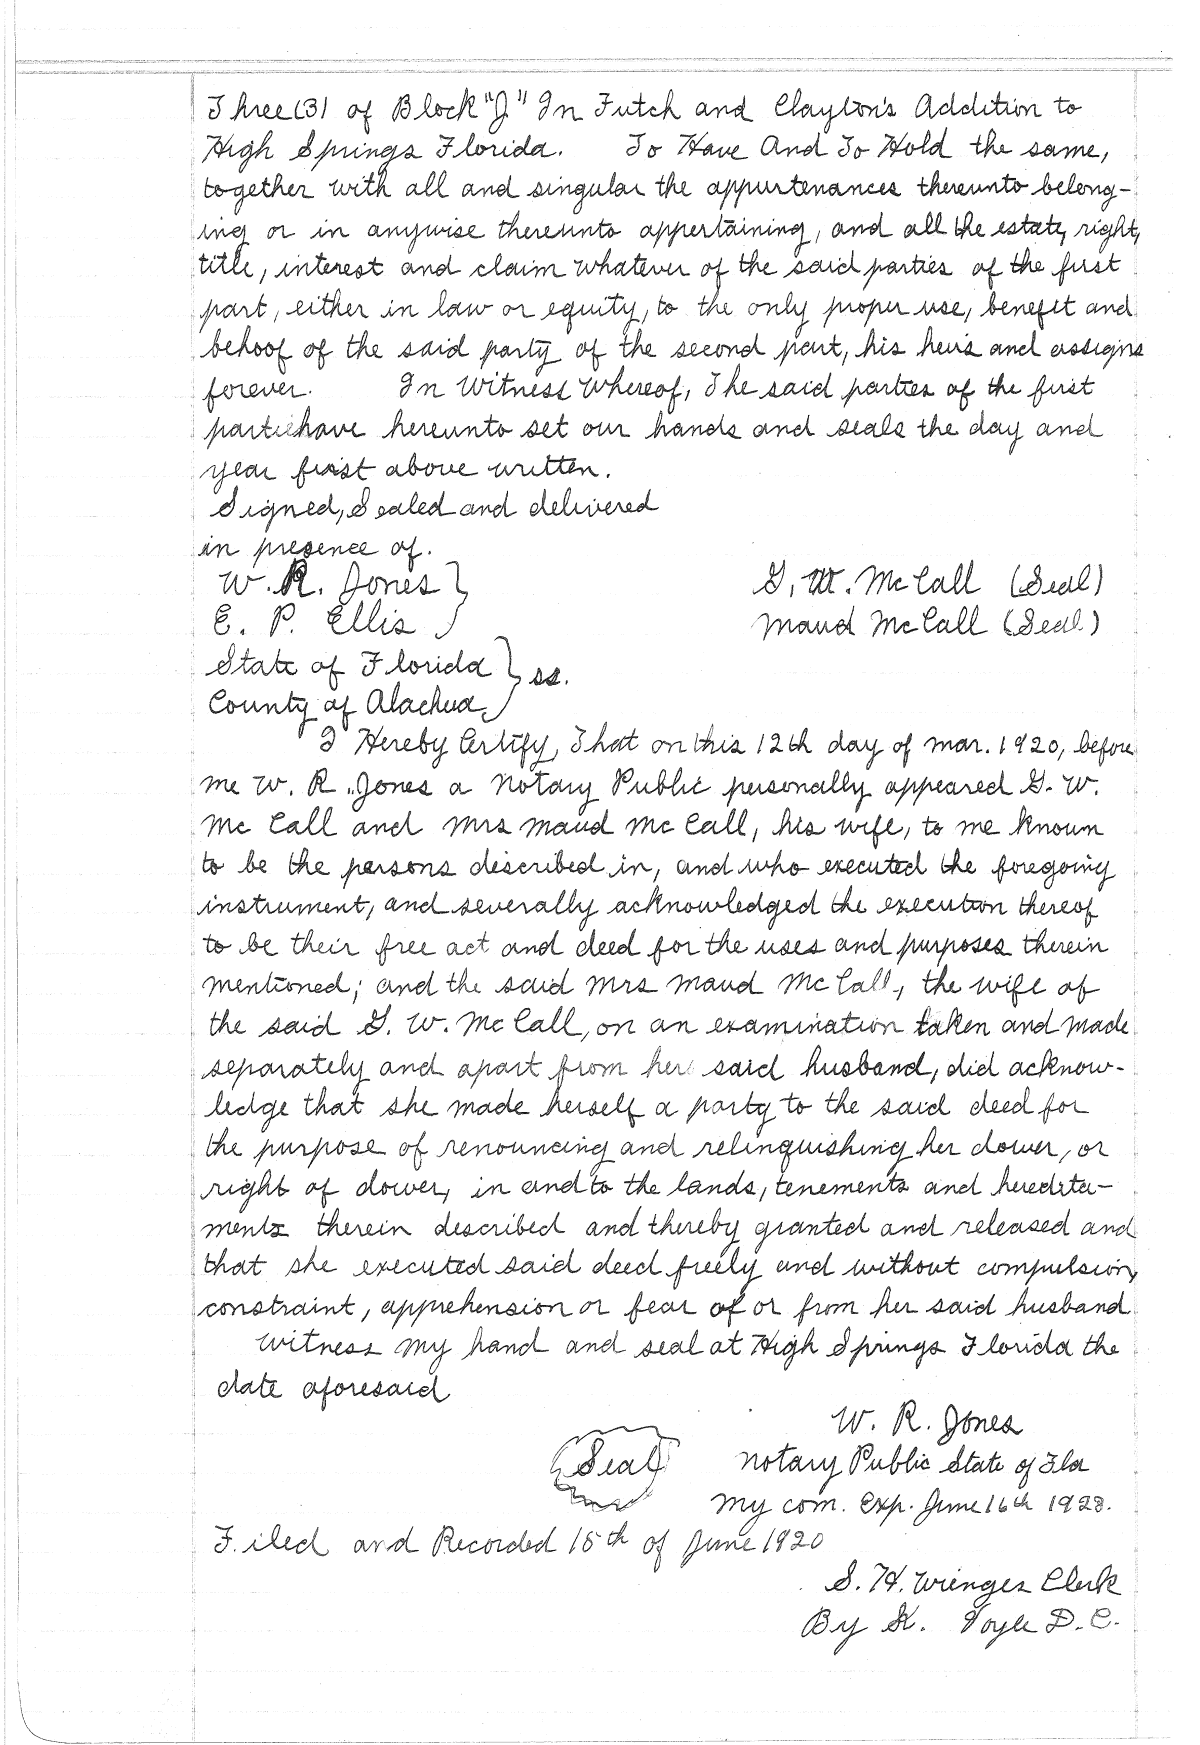 Three (3) of Block "J" In Futch and Clayton's Addition to
High Springs Florida. To Have And To Hold the same,
together with all and singular the appurtenances thereunto belong-
ing or in anywise thereunto appertaining, and all the estate, right,
title, interest and claim whatever of the said parties of the first
part, either in law or equity, to the only proper use, benefit and
behoof of the said party of the second part, his heirs and assigns
forever. In Witness Whereof, The said parties of the first
part have hereunto set our hands and seals the day and
year first above written.
Signed, Sealed and delivered
in presence of.
W. R. Jones
G. W. McCall (Seal)
E. P. Ellis
Maud McCall (Seal)
State of Florida
ss.
County of Alachua
I Hereby Certify, That on this 12th day of Mar. 1920, before
me W. R. Jones a Notary Public personally appeared G. W.
Mc Call and Mrs Maud Mc Call, his wife, to me known
to be the persons described in, and who executed the foregoing
instrument, and severally acknowledged the execution thereof
to be their free act and deed for the uses and purposes therein
mentioned; and the said Mrs Maud McCall, the wife of
the said G. W. McCall, on an examination taken and made
separately and apart from her said husband, did acknow-
ledge that she made herself a party to the said deed for
the purpose of renouncing and relinquishing her dower, or
right of dower, in and to the lands, tenements and heredita-
ments therein described and thereby granted and released and
that she executed said deed freely and without compulsion,
constraint, apprehension or fear of or from her said husband
Witness my hand and seal at High Springs Florida the
date aforesaid
W. R. Jones
Seal
Notary Public State of Fla
My com. Exp. June 16th 1923.
Filed and Recorded 15th of June 1920
S. H. Wienges Clerk
By K. Voyle D. C.